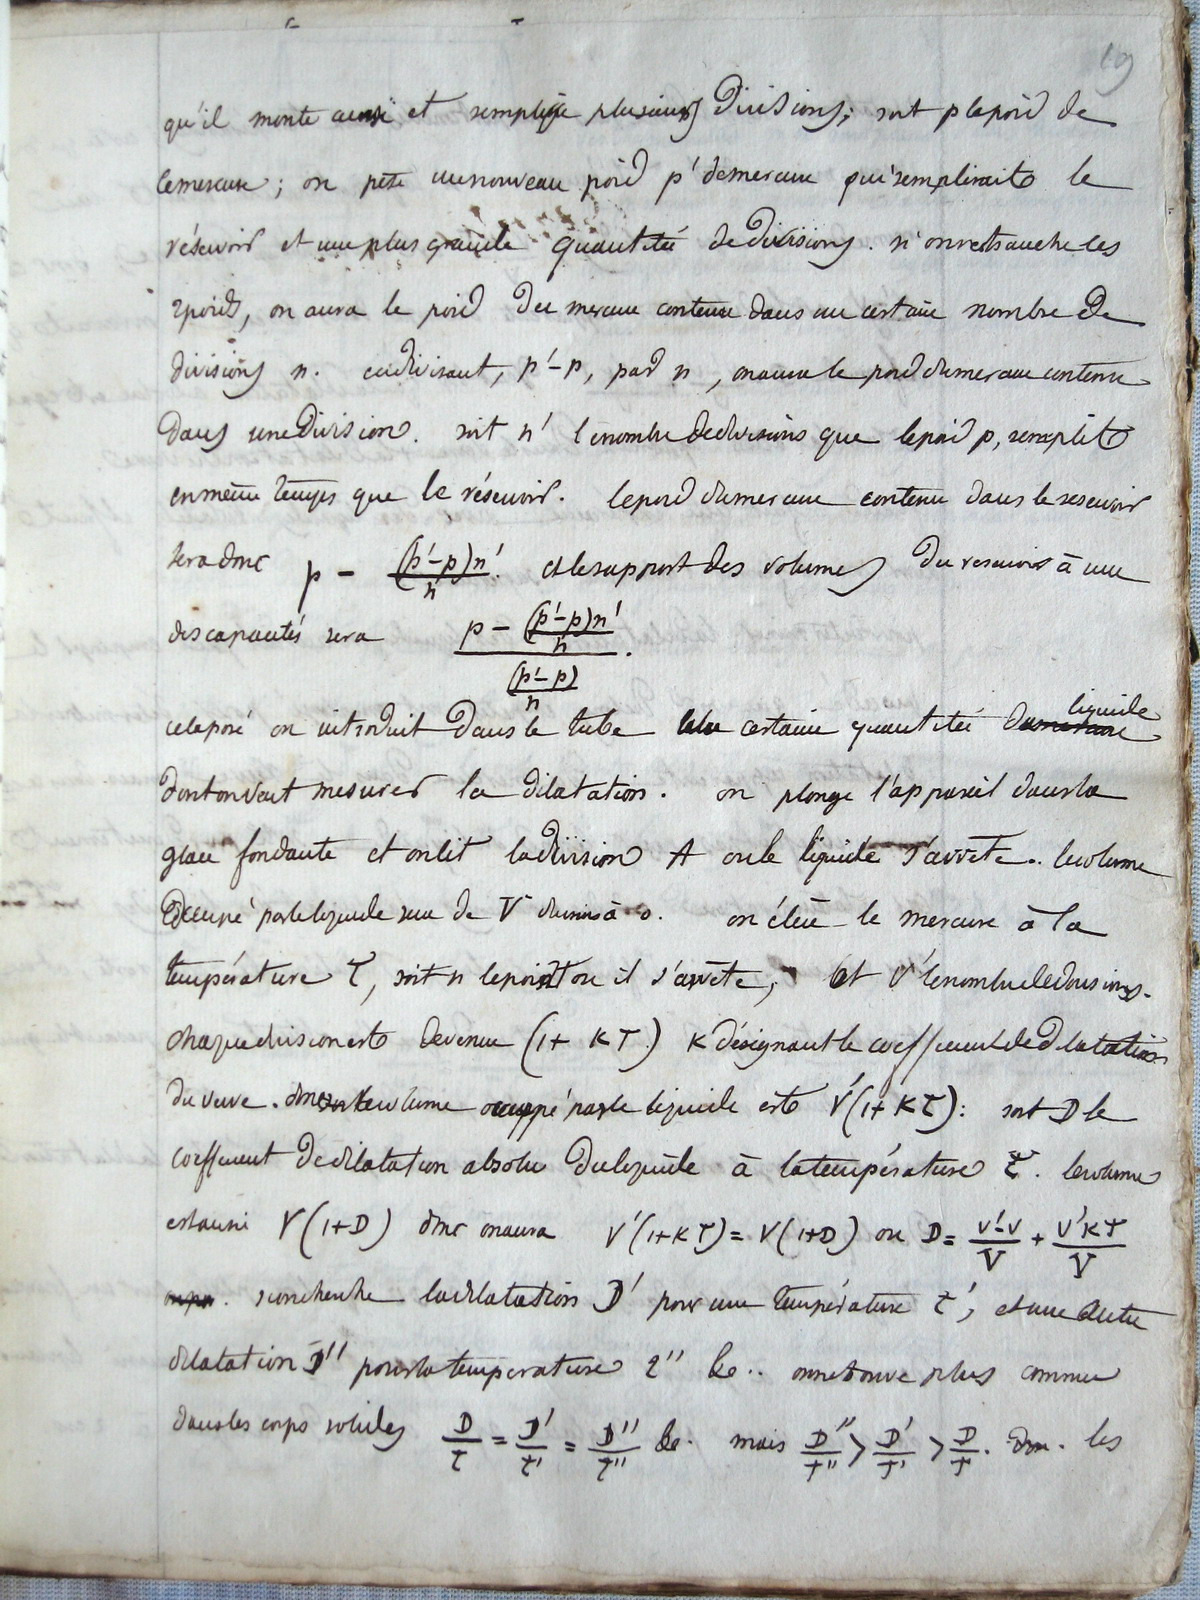 19
qu'il monte aussi et remplisse plusieurs divisions; soit p le poid de
ce mercure; on pèse un nouveau poid p' de mercure qui remplirait le
réservoir et une plus grande quantitée de divisions. si on retranche les
2 poids, on aura le poid du mercure contenu dans un certain nombre de
divisions n. en divisant, p'-p, par n, on aura le poid du mercure contenu
dans une division. soit n' le nombre de divisions que le poid p, remplit
en même temps que le réservoir. le poid du mercure contenu dans le reservoir
sera donc p - (p'-p)n'/n. et le rapport des volumes du reservoir à une
des capacités sera (p - (p'-p)n'/n) / ((p'-p)/n).
liquide
cela posé on introduit dans le tube une certaine quantitée du mercure
dont on veut mesurer la dilatation. on plonge l'appareil dans la
glace fondante et on lit la division A ou le liquide s'arrete.. le volume
occupé par le liquide sera de V divisions à 0. on élève le mercure à la
température T, soit n le point ou il s'arrête, et V' le nombre de divisions.
chaque division est devenue (1+KT) K désignant le coefficient de dilatation
du verre. donc le volume occuppé par le liquide est V'(1+KT): soit D le
coefficient de dilatation absolue du liquide à la température T. le volume
est aussi V(1+D) donc on aura V'(1+KT)=V(1+D) ou D = (V'-V)/V + V'KT/V
si on cherche la dilatation D' pour une température T', et une autre
dilatation D'' pour la temperature T'' &c.. on ne trouve plus comme
dans les corps solides D/T = D'/T' = D''/T'' &c. mais D''/T'' > D'/T' > D/T. donc. les